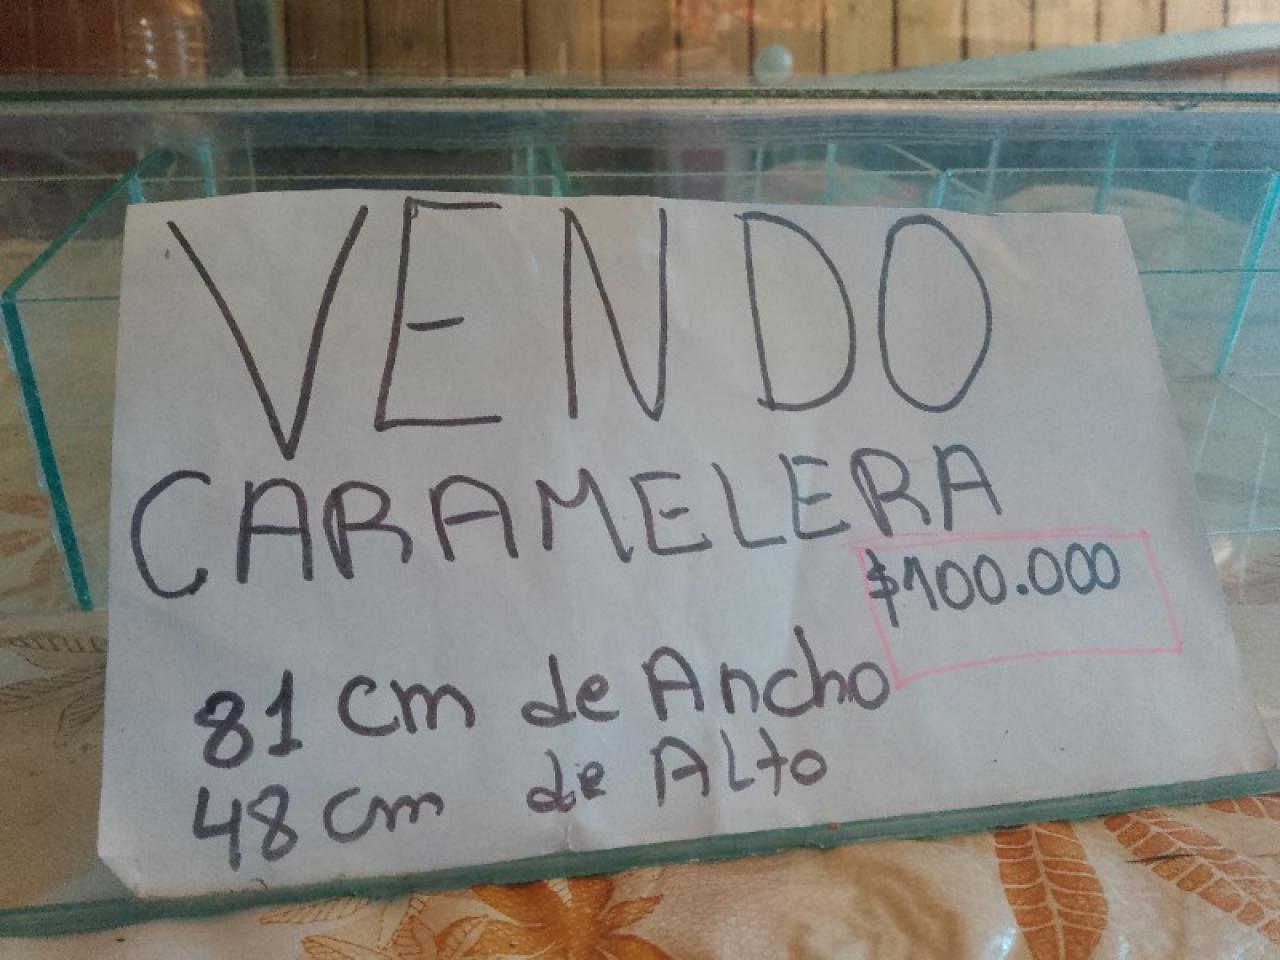 VENDO
CARAMELERA
$100.000
81 cm de Ancho
48 cm de Alto